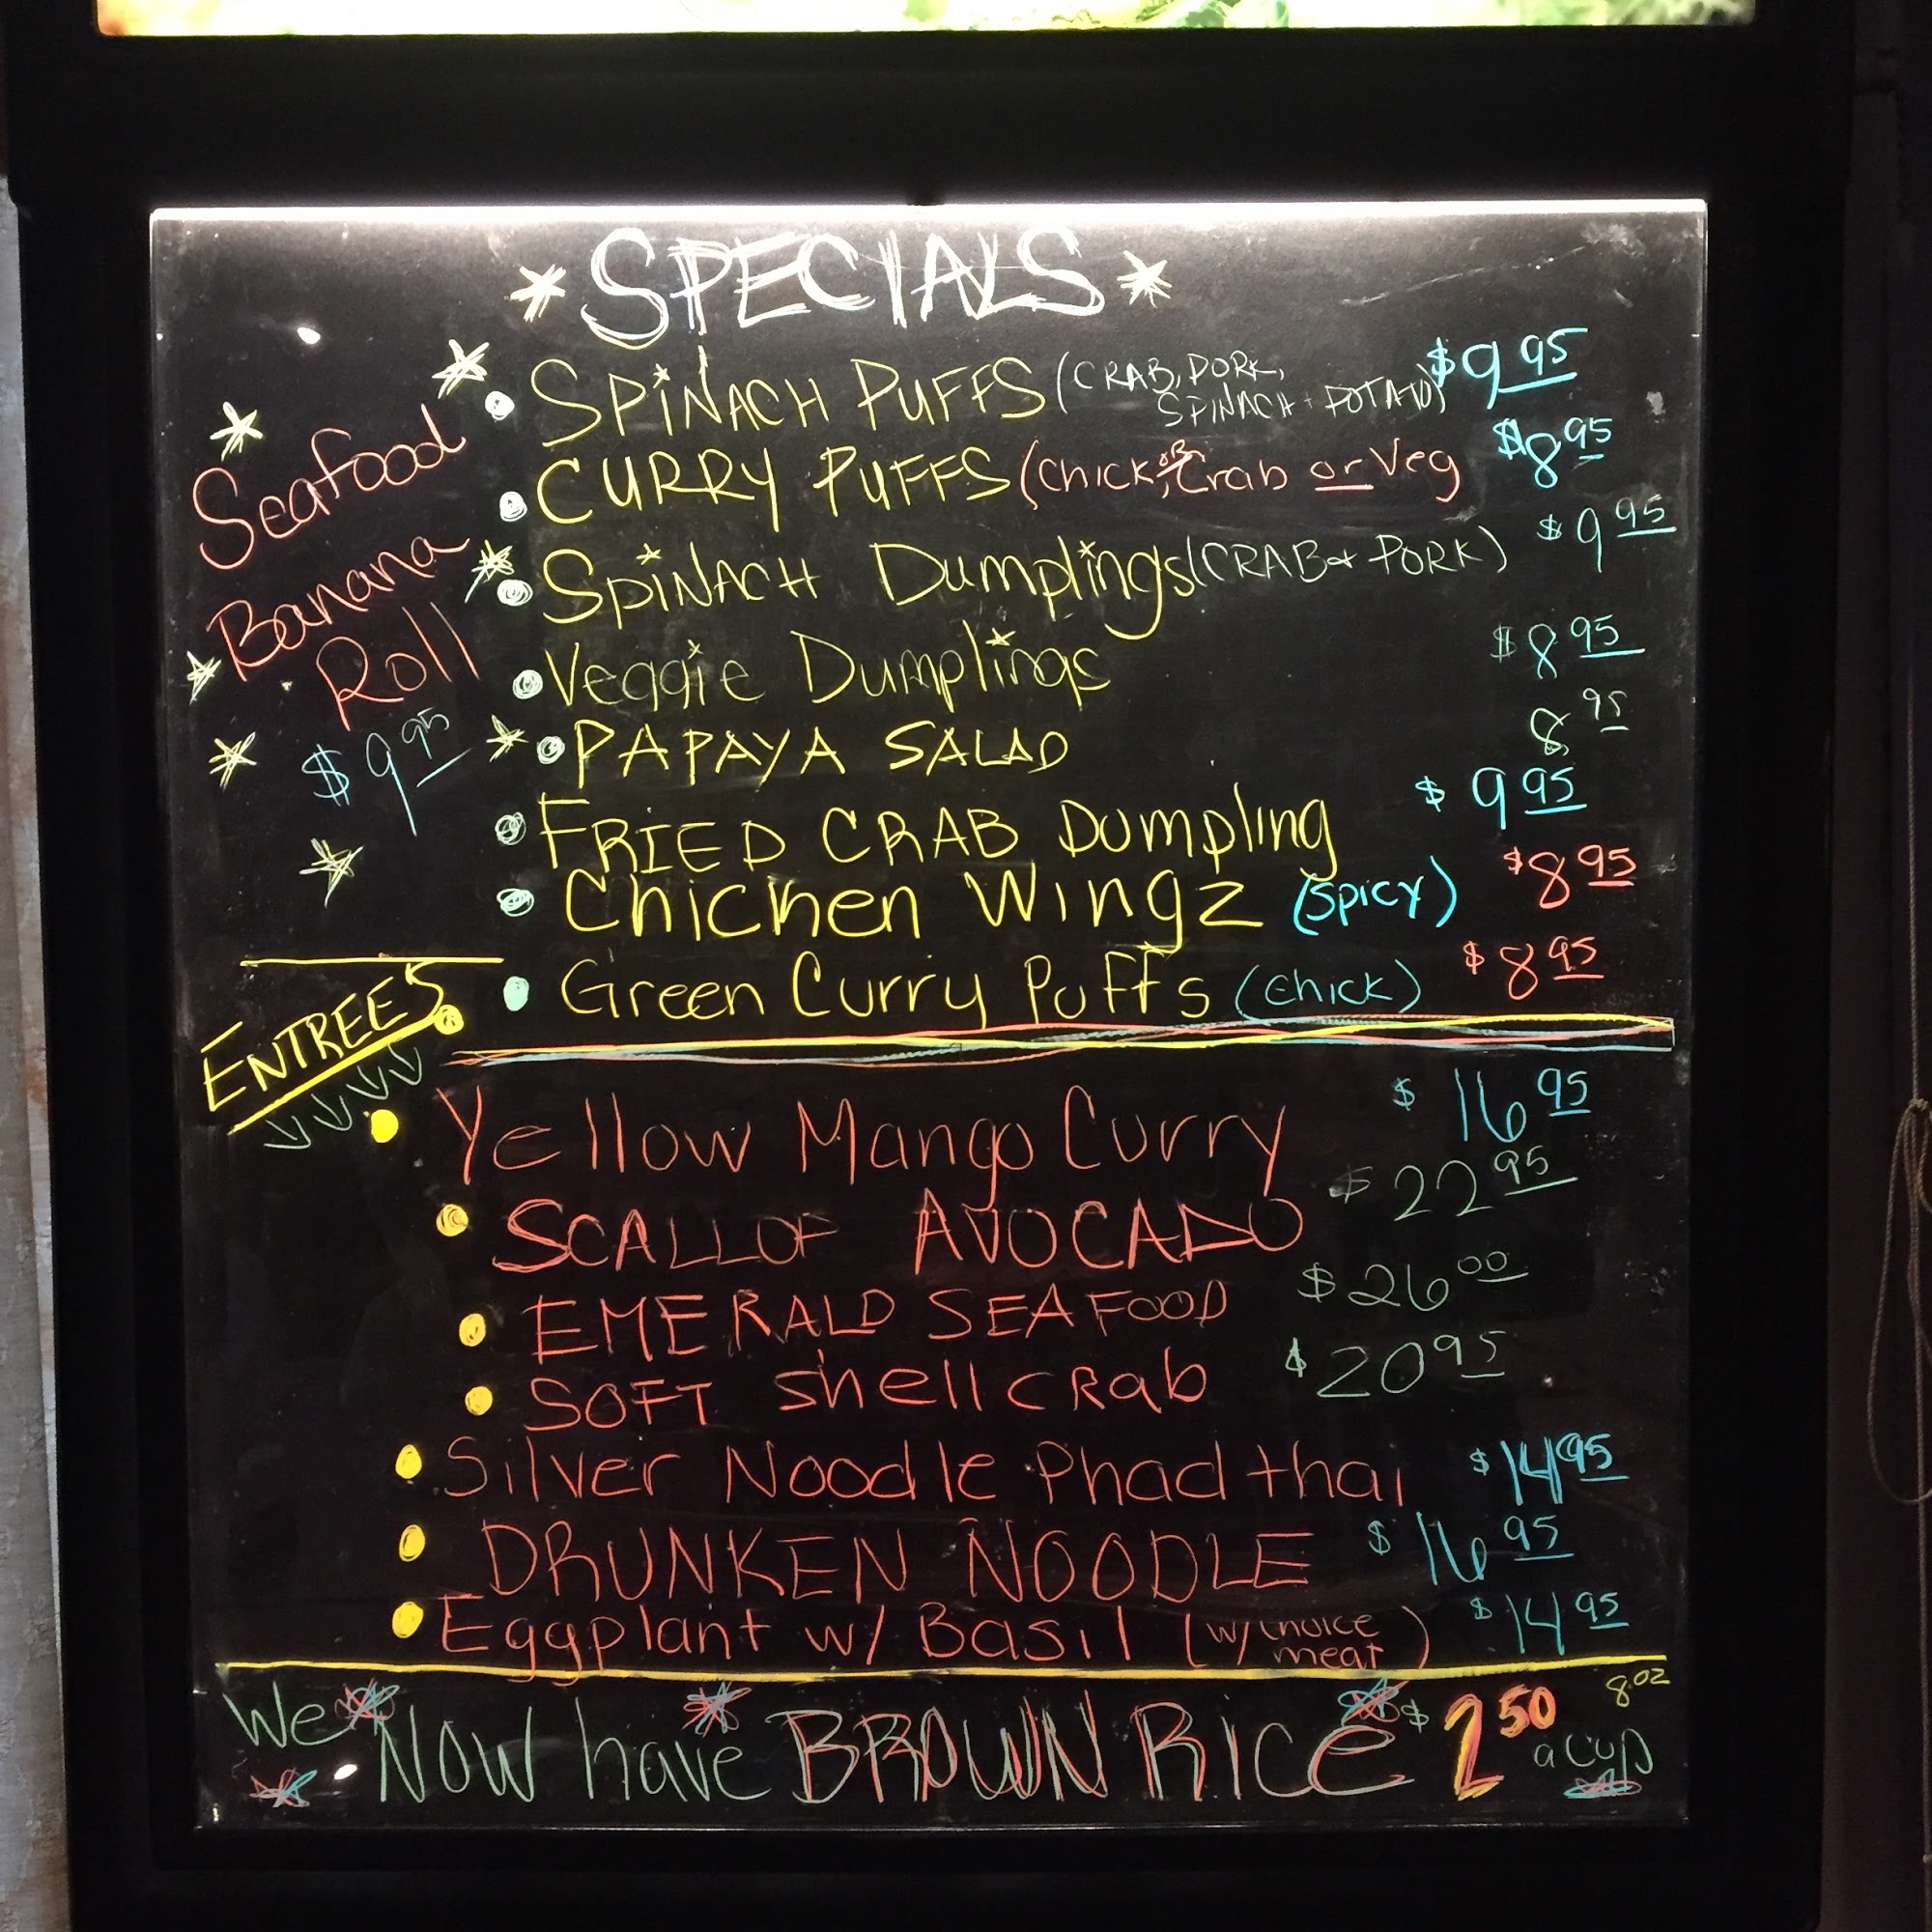 * SPECIALS *
• SPINACH PUFFS (CRABS, PORK, SPINACH + POTATO) $9.95
• CURRY PUFFS (Chick, or Crab or Veg $8.95
• SPINACH Dumplings (CRAB & PORK) $9.95
• Veggie Dumplings $8.95
• PAPAYA SALAD 8.95
• FRIED CRAB Dumpling $9.95
• Chicken Wingz (Spicy) $8.95
• Green Curry Puffs (Chick) $8.95
Seafood
Banana
Roll
$9.95
ENTREES
• Yellow Mango Curry $16.95
• SCALLOP AVOCADO $22.95
• EMERALD SEAFOOD $26.00
• SOFT shell CRab $20.95
• Silver Noodle Phad thai $14.95
• DRUNKEN NOODLE $16.95
• Eggplant w/ Basil (w/ choice meat) $14.95
We Now have BROWN RICE $2.50 8oz a cup